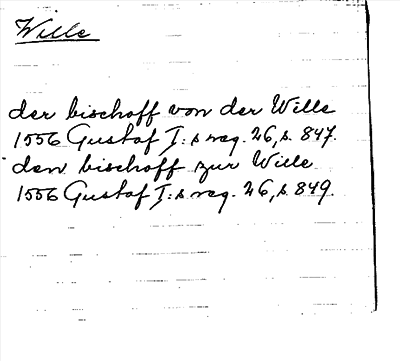 Wille
der bischoff von der Wille
1556 Gustaf I:s reg. 26, s. 847.
den bischoff zur Wille
1556 Gustaf I:s reg. 26, s. 849.